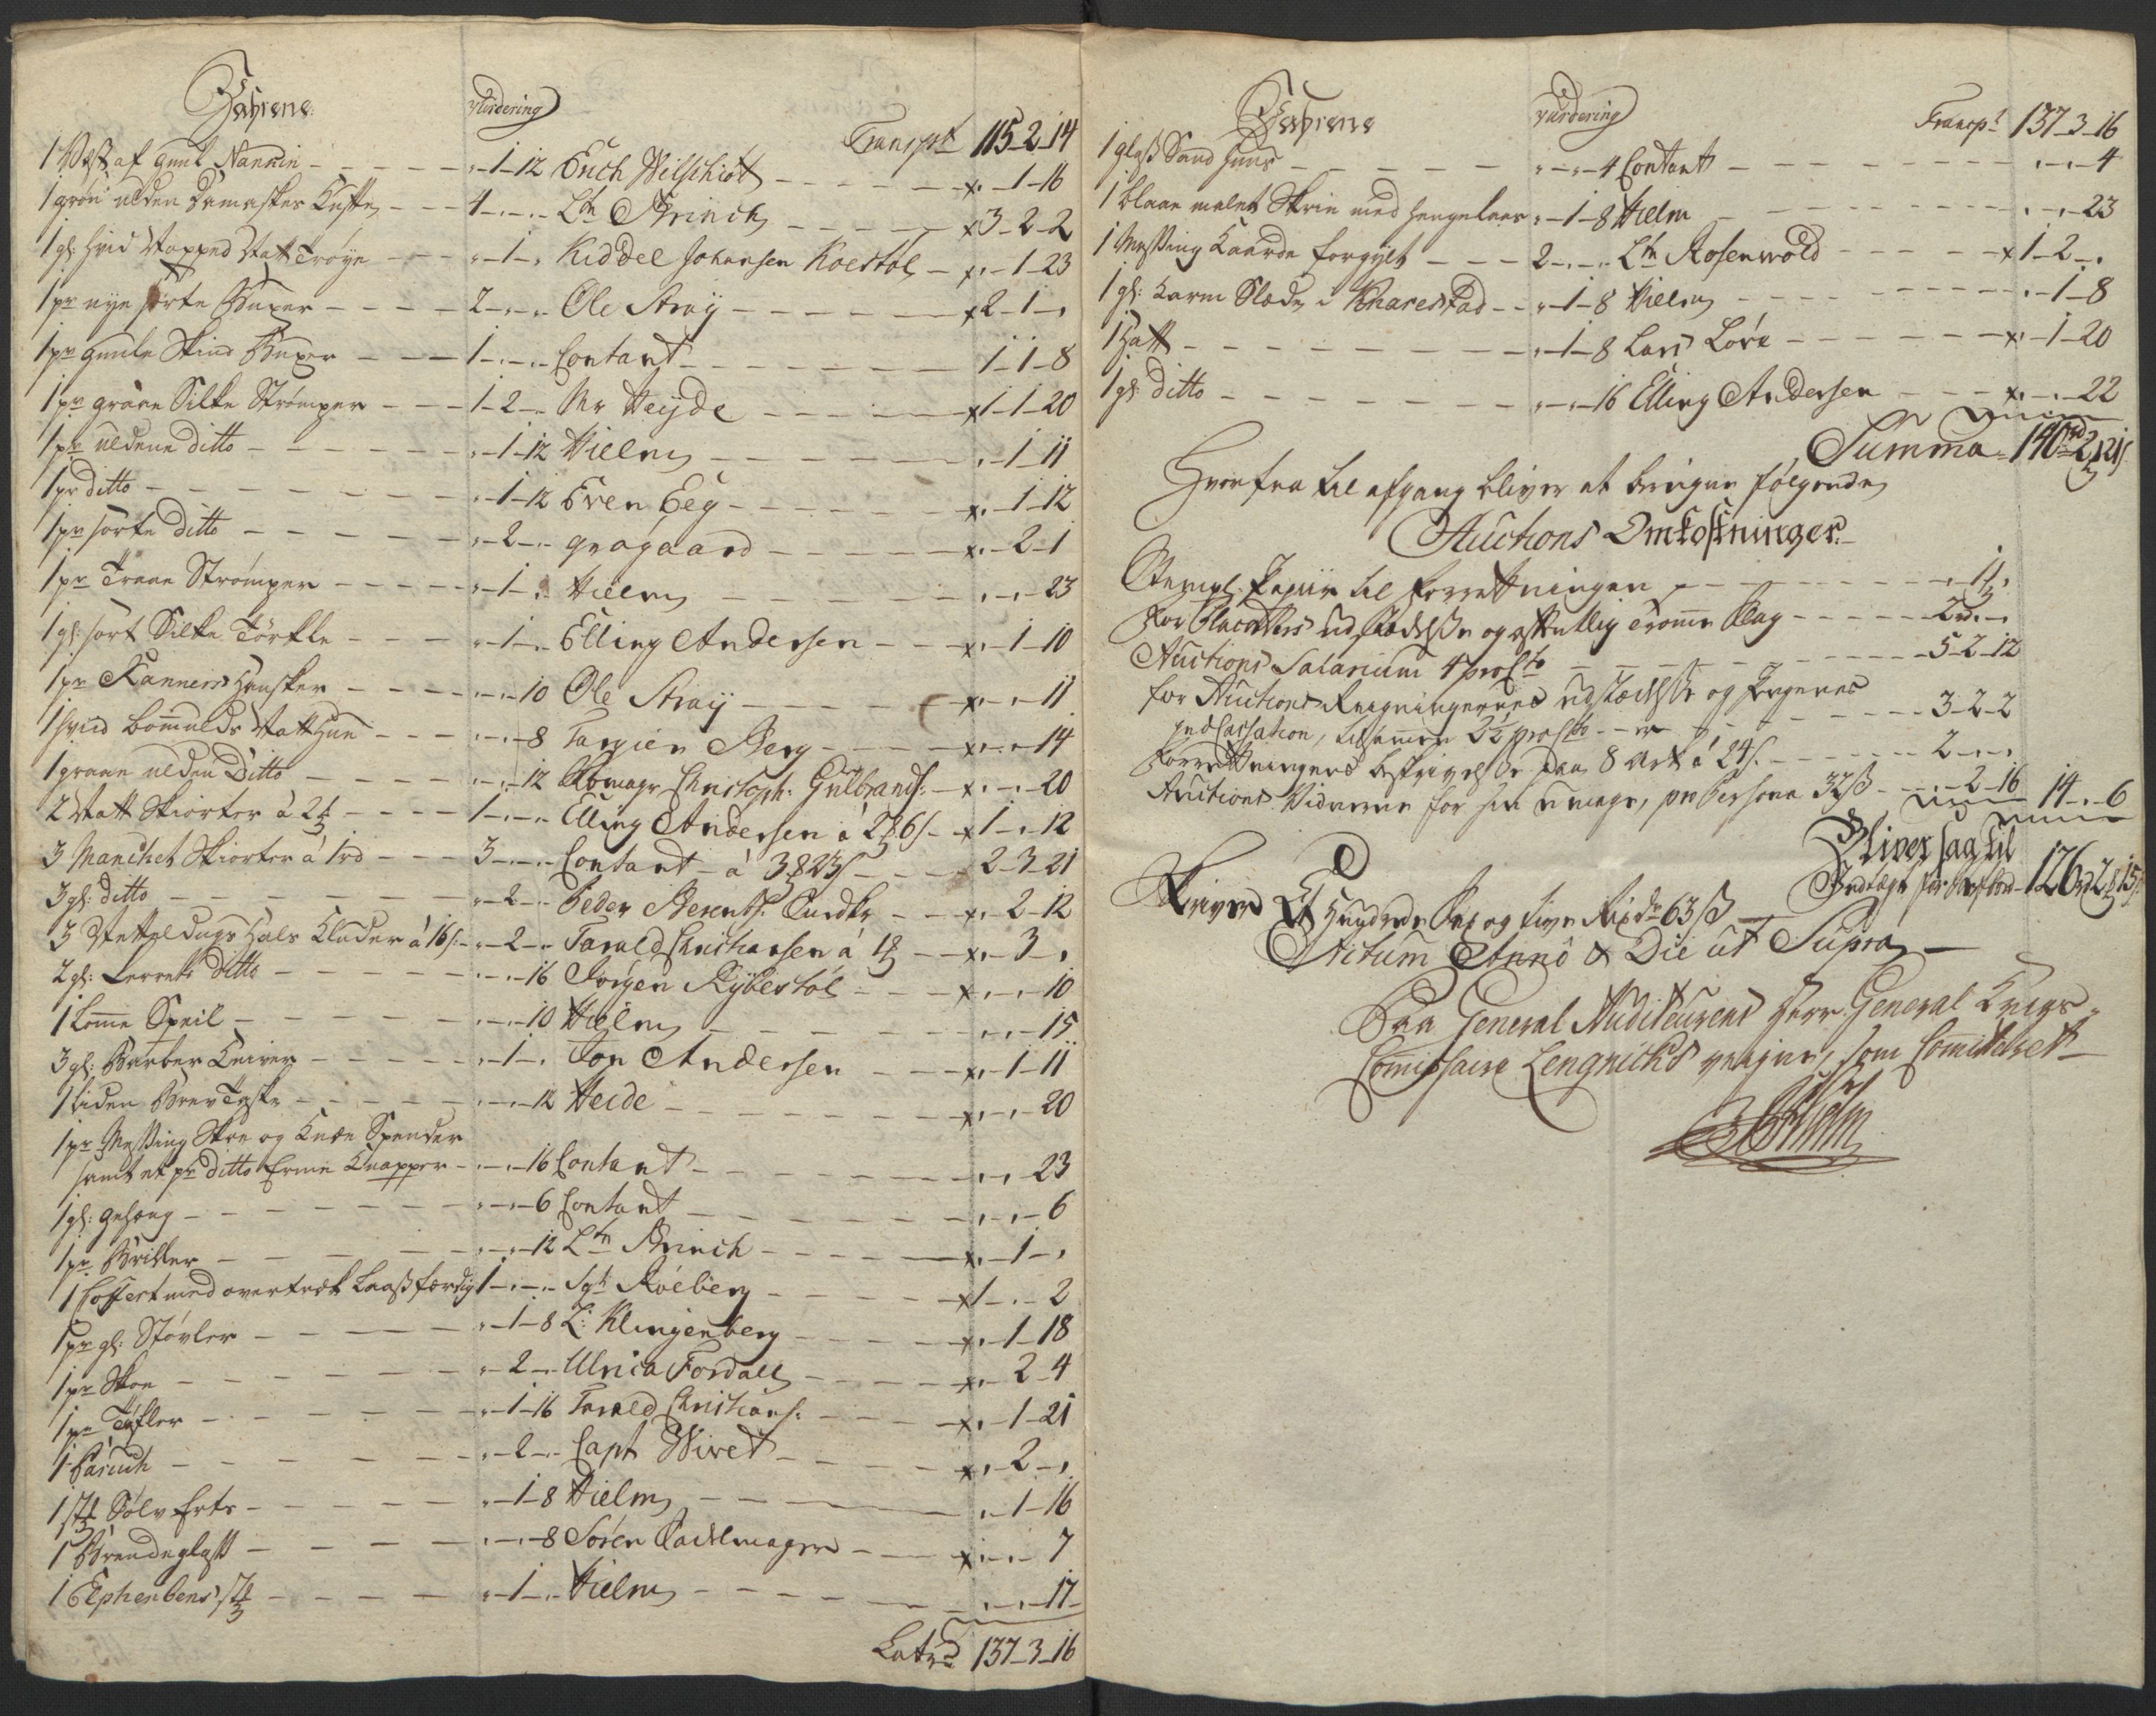 Vahrene. Vurdering
Transpt 115-2-14
1 Vest af guul Nankin - - - „-1-12 Erich Wilschiöt - - - x„-1-16
1 grön ulden Damaskes - - - 4-„-„ Ltn Brinch - - - x3-2-2
1 gl: hvid Vatt Tröye - - - „-1-„ Kiddel Johansen Roestöl - x„-1-23
1 pr nye sorte Buxer - - - 2-„-„ Ole Aray - - - x2-1-„
1 pr guule Skind Buxer - - - 1-„-„ Contant - - - 1-1-8
1 pr graae Silke Strömper - - - 1-2-„ Mr Heyde - - - x1-1-20
1 pr uldene ditto - - - „-1-12 Hielm - - - „-1-11
1 pr ditto - - - „-1-12 Even Eeg - - - x„-1-12
1 pr sorte ditto - - - „-2-„ Graagaard - - - x„-2-1
1 pr Traae Strömper - - - „-1-„ Hielm - - - „-„-23
1 gl: sort Silke Törkle - - - „-1-„ Elling Andersen - - - x„-1-10
1 pr Hansker - - - „-„-10 Ole Aray - - - x„-„-11
1 hviid bomulds Natt Hue - - - „-„-8 Targien Berg - - - x„-„-14
1 graae ulden Ditto - - - „-„-12 Christoph: Gulbrands: - x„-„-20
2 Natt Skiorter à 2 - - - 1-„-„ Elling Andersen à 2 6 s - x1-„-12
3 Manchet Skiorter à 1 rd - - - 3-„-„ Contant - à 3 23 s - - - 2-3-21
3 gl: ditto - - - „-2-„ Peder Berents: - - x„-2-12
3 Netteldugs Hals Kluder à 16 s - „-2-„ Tarald Christiansen à 1 - - x„-3-„
2 gl: Lerrets ditto - - - „-„-16 Jörgen Rybestöl - - - x„-„-10
1 Lomme Speil - - - „-„-10 Hielm - - - „-„-15
3 gl: Barber Kniver - - - „-1-„ Jon Andersen - - - x„-1-11
1 liden Brev Taske - - - „-„-12 Heide - - - x„-„-20
1 pr Messing Skoe og Knæe Spender
samt et pr ditto Erme Knapper - „-„-16 Contant - - - „-„-23
1 gl: Gehæng - - - „-„-6 Contant - - - „-„-6
1 pr Briller - - - „-„-12 Ltn Brinch - - - x„-1-„
1 Coffert med overtræk Laassfærdig 1-„-„ Sgt Röeberg - - - x1-„-2
1 pr gl: Stövler - - - „-1-8 L: Klingenberg - - - x„-1-18
1 pr Skoe - - - „-2-„ Ulrica Fordall - - - x„-2-4
1 pr Töfler - - - „-1-16 Tarald Christians: - - - x„-1-21
1 Paruch - - - „-2-„ Capt Wivet - - - x„-2-„
1 st Sölv Erts - - - „-1-8 Hielm - - - „-1-16
1 Brendeglass - - - „-„-8 Sören Sadelmager - - - x„-„-7
1 Elphenbens st - - - „-1-„ Hielm - - - „-„-17
Latus 137-3-16
Vahrene Vurdering
Transpt 137-3-16
1 glass Sand Huus - - - „-„-4 Contant - - - „-„-4
1 blaae malet Skrin med Hengelaas „-1-8 Hielm - - - „-„-23
1 Messing Kaarde forgylt - - - 2-„-„ Ltn Rosenvold - - - x1-2-„
1 gl: Karm Slæde i Knarestad - - „-1-8 Hielm - - - „-1-8
1 Hatt - - - „-1-8 Lars Löve - - - x„-1-20
1 gl: ditto - - - „-„-16 Elling Andersen - - - x„-„-22
Summa 140 rd 2 21 s
Hvorfra til afgang bliver at beregne fölgende
Auctions Omkostninger.
Stempl: Papiir til Forretningen - - - „-1-„
For Placaters udstædelse og Tromme Slag - - - 2-„
Auctions Salarium 4 proCto - - - 5-2-12
for Auctions Regningernes udstædelse og Pengenes
IndCassation, tilsammen 2½ proCto - - - 3-2-2
Forretningens beskrivelse paa 8 Ark à 24 s - - - 2-„-„
Auctions Vidnerne for hver umage, pr Persone 32 s - - „-2-16 14-„-6
Bliver saa til
Indtægt for 126 rd 2 15 s
Skriver Et Hundrede Sex og tive Rixdr 63 s
Actum Anno & Die ut Supra
Paa General Auditeurens Herr General Krigs-
Commissaire Lengnichs vegne, som Committeret
Hielm